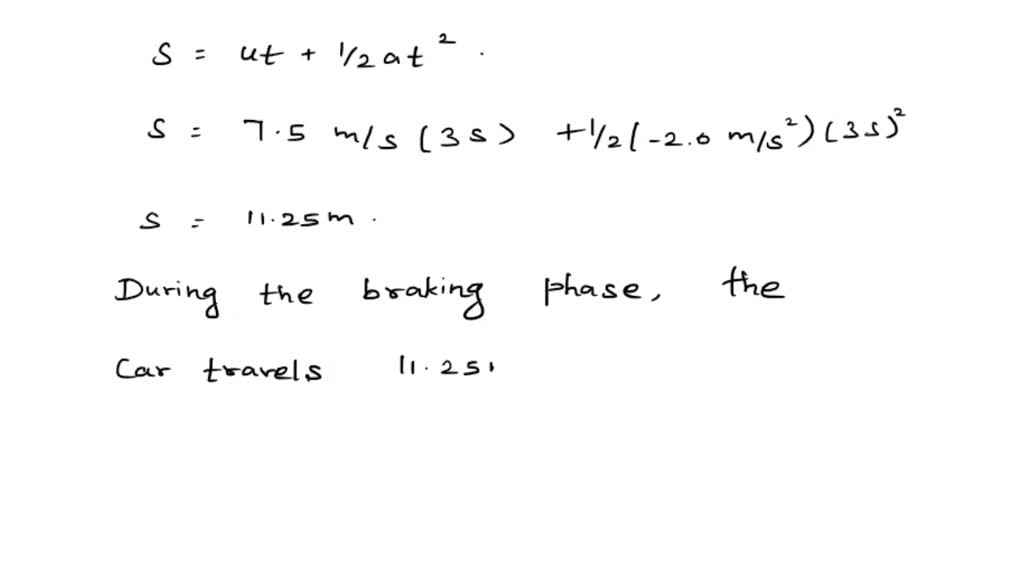 S = ut + 1/2 at².
S = 7.5 m/s (3s) + 1/2 (-2.0 m/s²) (3s)²
S = 11.25m.
During the braking phase, the
Car travels 11.25